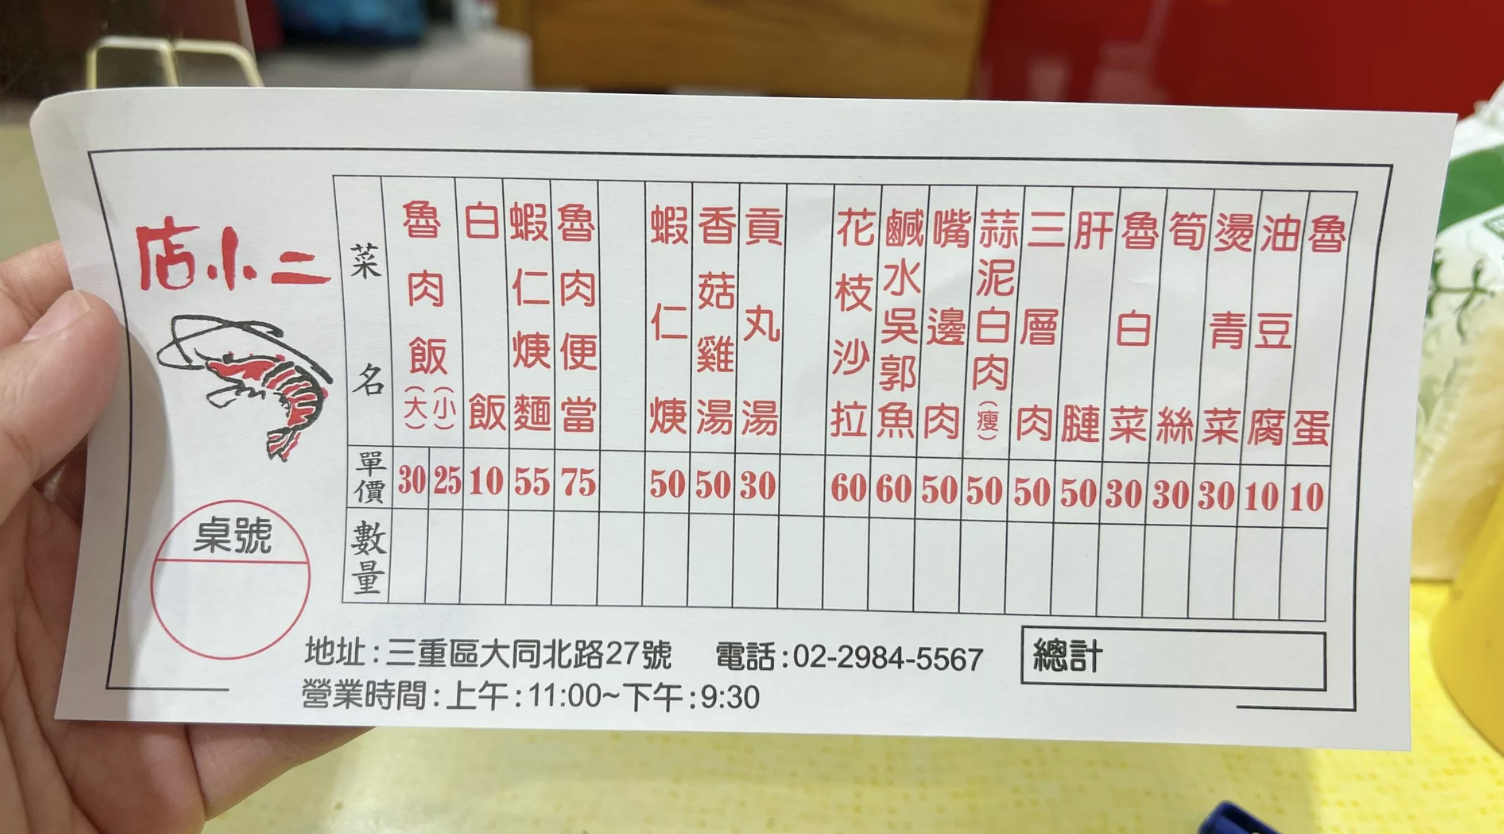 店小二
桌號
菜名 單價 數量
魯肉飯 (大) 30 (小) 25
白飯 10
蝦仁焿麵 55
魯肉便當 75
蝦仁焿 50
香菇雞湯 50
貢丸湯 30
花枝沙拉 60
鹹水吳郭魚 60
嘴邊肉 50
蒜泥白肉(瘦) 50
三層肉 50
肝腱 50
魯白菜 30
筍絲 30
燙青菜 30
油豆腐 10
魯蛋 10
地址:三重區大同北路27號 電話:02-2984-5567
營業時間:上午:11:00~下午:9:30
總計